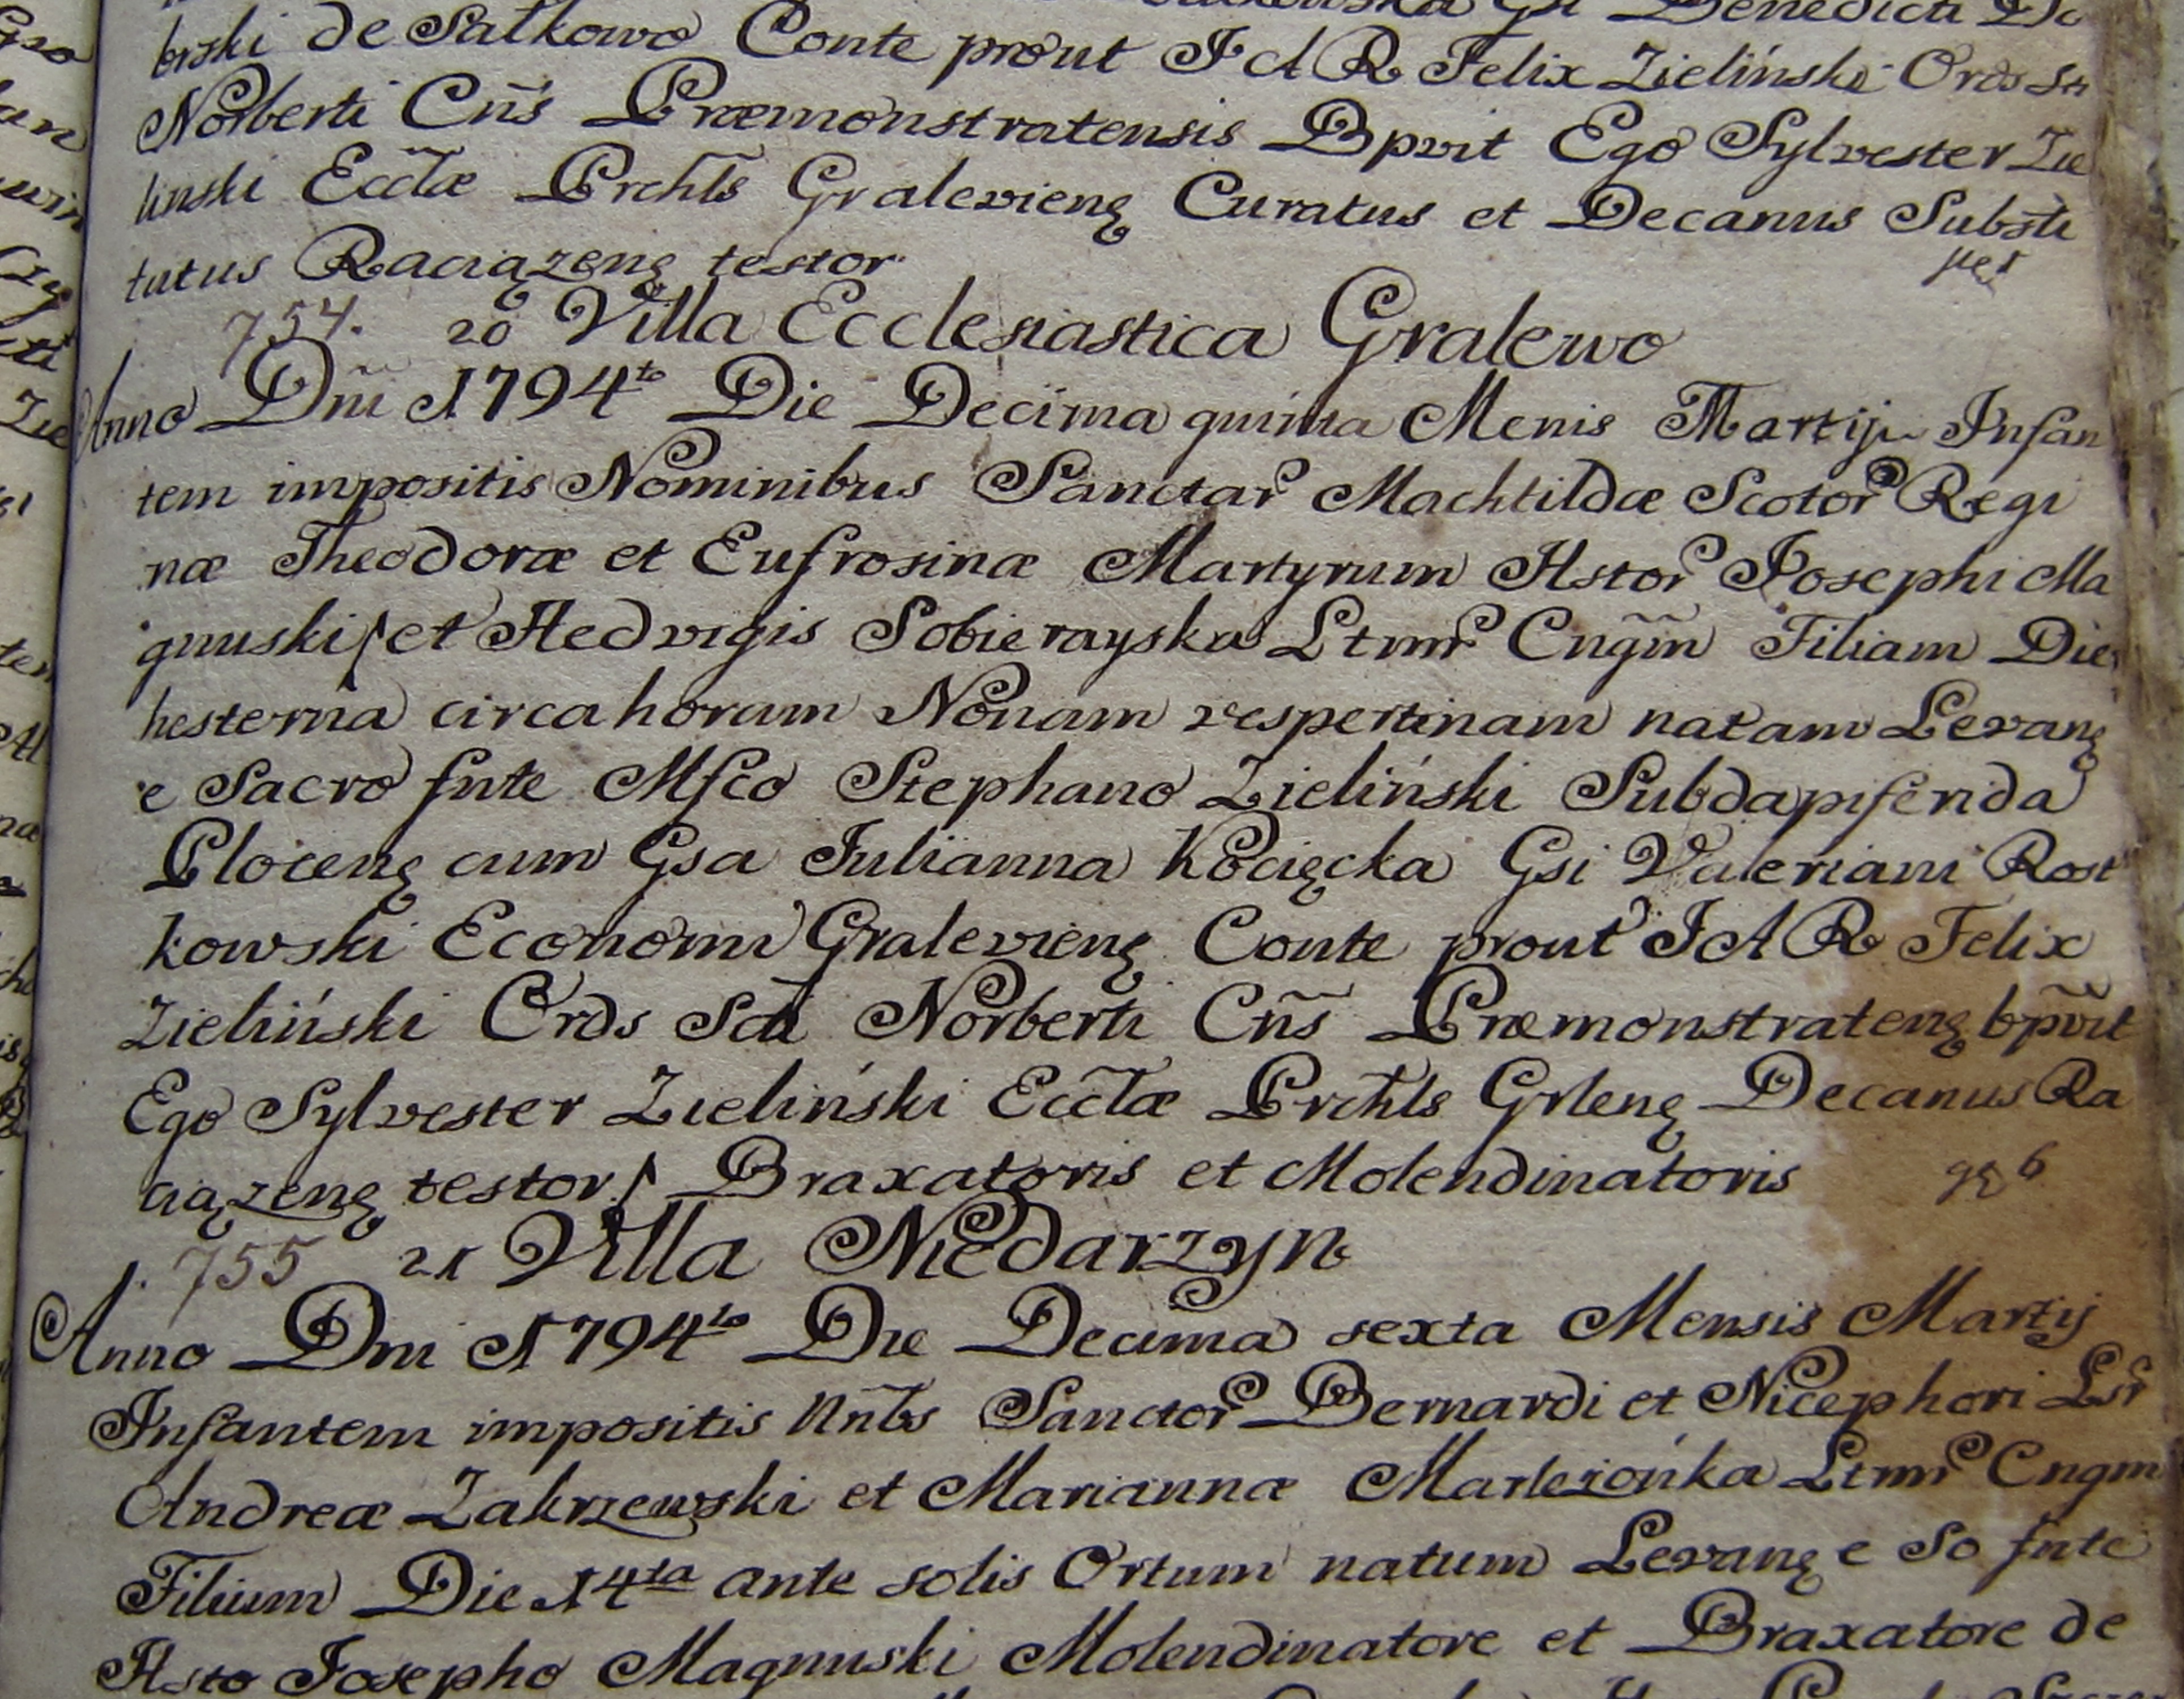 Benedicti Do
brski de Satkowo Conte prout I A R Felix Zieliński Ords Sti
Norberti Cñs Præmonstratensis Bpvit Ego Sylvester Zie
linski Ecclæ Prchls Gralevienę Curatus et Decanus Substi
tutus Raciązenę testor.
754. 20 Villa Ecclesiastica Gralewo
Anno Dñi 1794to Die Decima quinta Menis Martij Infan
tem impositis Nominibus Sanctar Machtildæ Scotor Regi
næ Theodoræ et Eufrosinæ Martyrum Hstor Josephi Ma
gnuski et Hedvigis Sobierayska Ltmr Cngm̃ Filiam Die
hesterna circa horam Nonam vespertinam natam Levanę
e Sacro fnte Mfco Stephano Zieliński Subdapiferida
Plocenę cum Gsa Julianna Kocięcka Gsi Valeriani Rost
kowski Economi Gralevienę Conte prout I A R Felix
Zieliński Ords Sti Norberti Cñs Præmonstratenę bpvit
Ego Sylvester Zieliński Ecclæ Prchls Grlenę Decanus Ra
ciązenę testor Braxatoris et Molendinatoris
755 21 Villa Niedarzyn
Anno Dni 1794to Die Decima sexta Mensis Martij
Infantem impositis Nñbs Sanctor Bernardi et Nicephori Lsr
Andreæ Zakrzewski et Mariannæ Marlezońka Ltmr Cngm
Filium Die 14ta ante solis Ortum natum Levanę e So fnte
Hsto Josepho Magnuski Molendinatore et Braxatore de